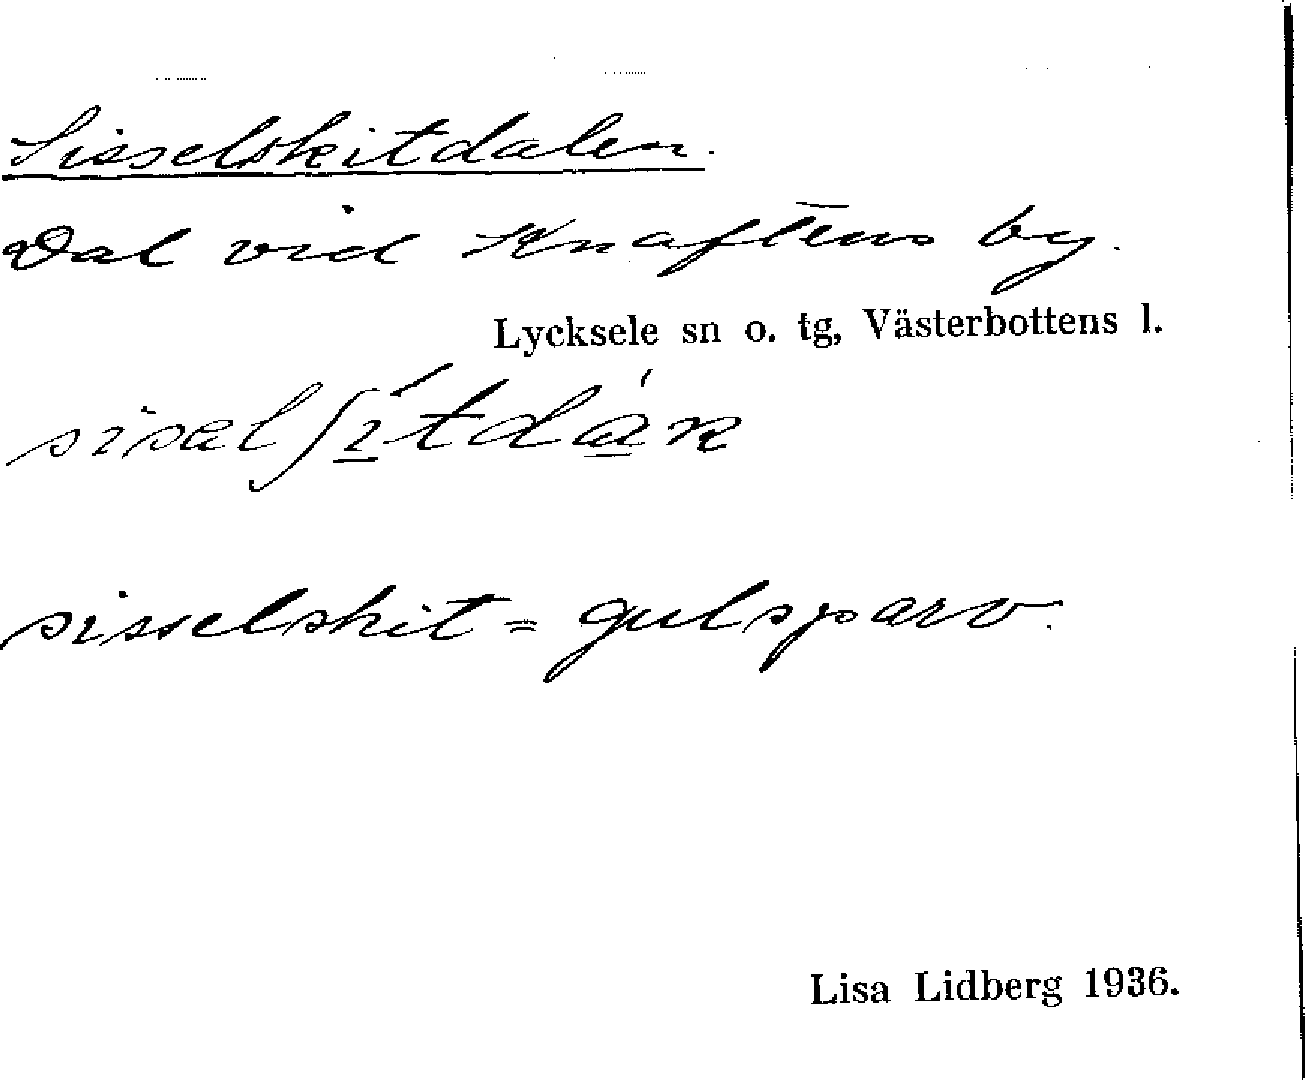 Sisselskitdalen.
Dal vid Knaftens by.
Lycksele sn o. tg, Västerbottens l.
siselʃí̱tdá̱n
sisselskit = gulsparv.
Lisa Lidberg 1936.